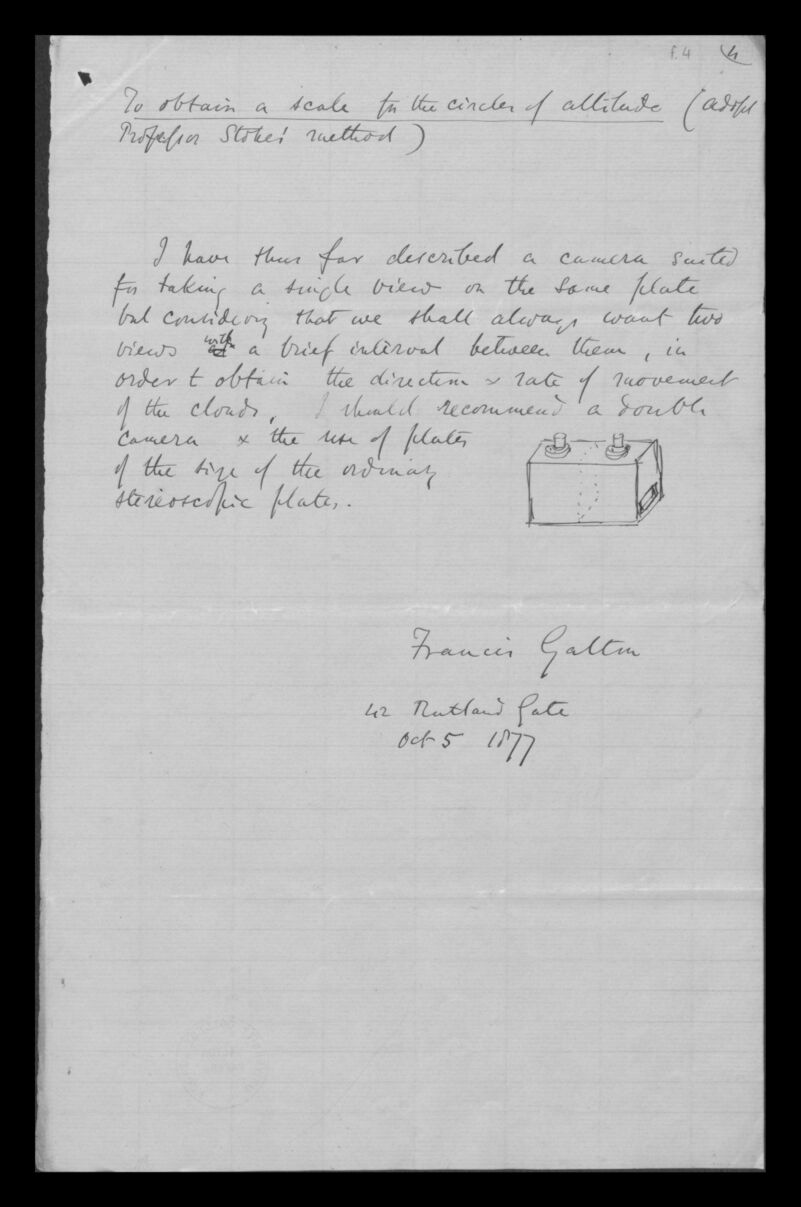 f.4 4
To obtain a scale for the circles of altitude (adopt
Professor Stokes' method)
I have thus far described a camera suited
for taking a single view on the same plate
but considering that we shall always want two
views with a brief interval between them, in
order to obtain the direction & rate of movement
of the clouds, I should recommend a double
camera & the use of plates
of the size of the ordinary
stereoscopic plates.
Francis Galton
42 Rutland Gate
Oct 5 1877